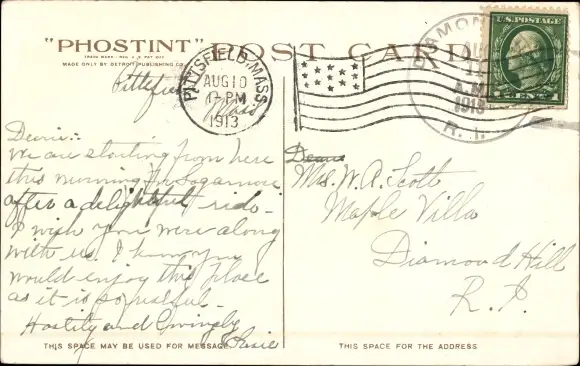 "PHOSTINT" POST CARD
TRADE MARK - REG. U.S. PAT. OFF.
MADE ONLY BY DETROIT PUBLISHING CO.
U.S. POSTAGE
PITTSFIELD, MASS.
AUG 10
PM
1913
DIAMOND
AUG
11
A.M.
1913
R. I.
Pittsfield
Mass
Dearie:-
We are starting from here
this morning for Sagamore
after a delightful ride -
I wish you were along
with us. I know you
would enjoy this place
as it is so restful -
Hastily and lovingly
Elsie
Dear
Mrs. W. A. Scott
Maple Villa
Diamond Hill
R. I.
THIS SPACE MAY BE USED FOR MESSAGE
THIS SPACE FOR THE ADDRESS